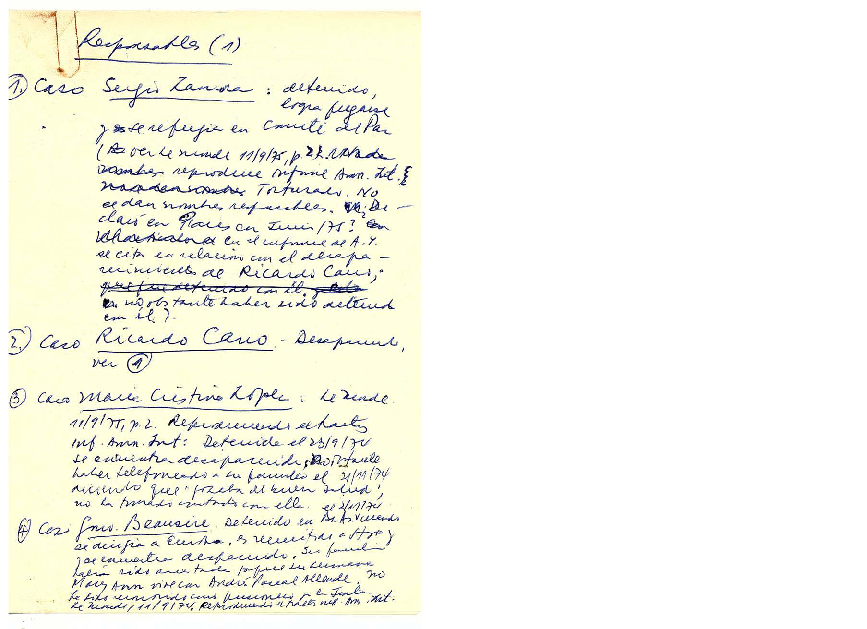 Responsables (1)
1. Caso Sergio Zamora : detenido,
logra fugarse
y se refugia en Comité de Paz
( ver Le Monde 11/9/75, p. 2
reproduce informe Amn. Int.
Torturado. No
se dan nombres responsables. De-
claró en París en Junio/75?
en el informe de A.I.
se cita en relación con el desapa-
recimiento de Ricardo Cano,
no obstante haber sido detenido
con él ).
2. Caso Ricardo Cano - Desaparecido,
ver 1
3 Caso María Cristina López : Le Monde
11/9/75, p. 2. Reproduciendo
Inf. Amn. Int: Detenida el 23/9/74
se encuentra desaparecida, no obstante
haber telefoneado a su familia el 2/11/74
diciendo que "gozaba de buen salud",
no ha tomado contacto con ella. el 2/11/74
4 Caso Gmo. Beausire. Detenido en Bs. As.
se dirigía a Europa, es a Stgo y
se encuentra desaparecido. Su familia
había sido porque su hermana
Mary Ann vive con Andrés Pascal Allende. no
ha sido reconocido como prisionero la Junta
Le Monde, 11/9/74, Reproduciendo Inf. Am. Int.